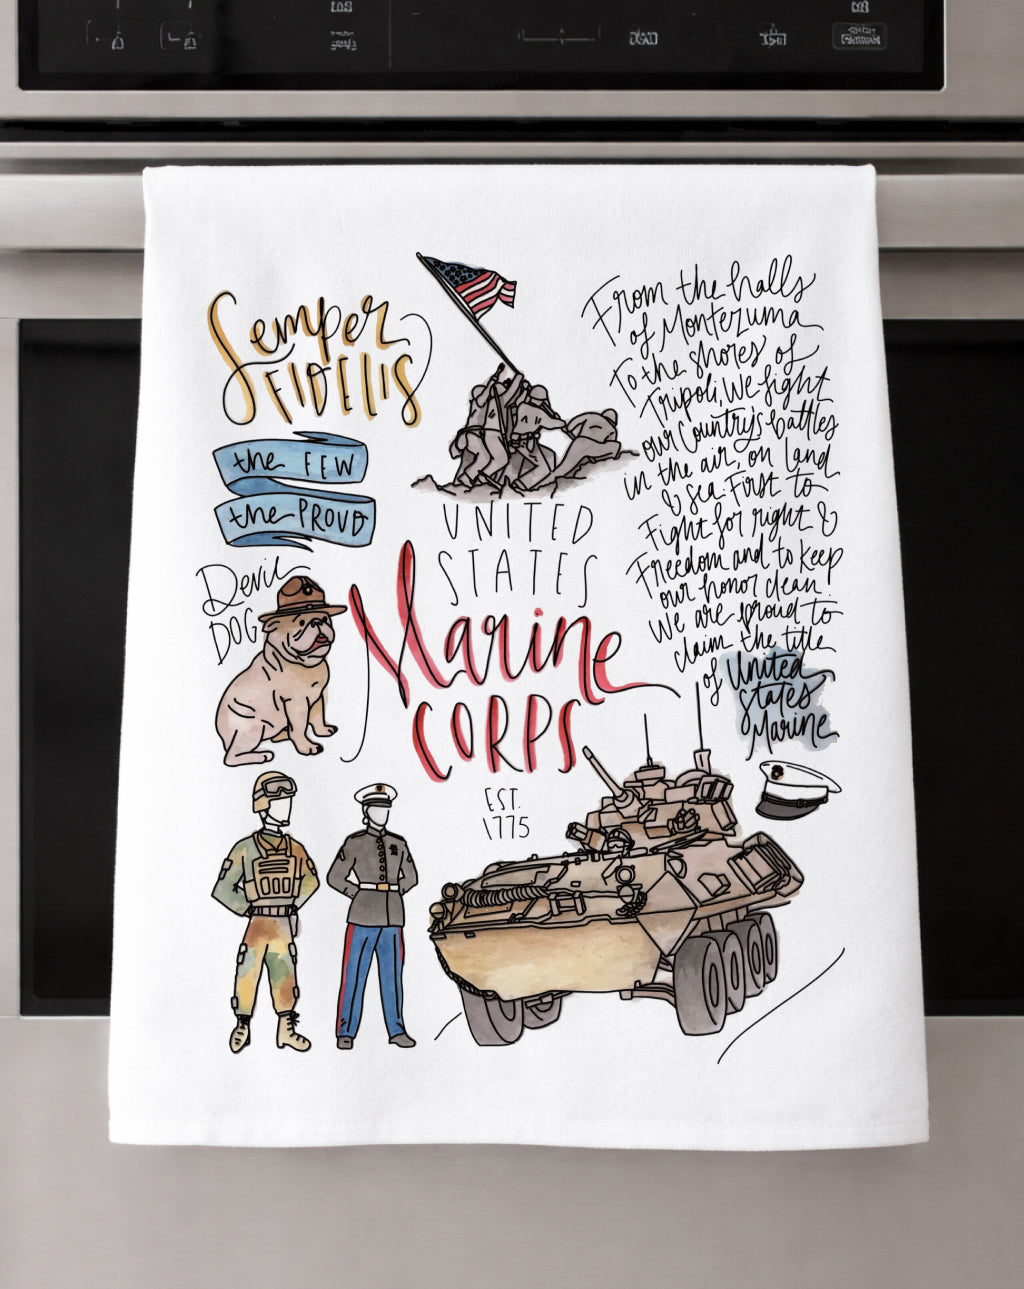 Semper
FIDELIS
the FEW
the PROUD
Devil
DOG
UNITED
STATES
Marine
CORPS
EST.
1775
From the halls
of Montezuma
To the shores of
Tripoli, We fight
our Country's battles
in the air, on land
& sea. First to
Fight for right &
Freedom and to keep
our honor clean.
We are proud to
claim the title
of United
States
Marine